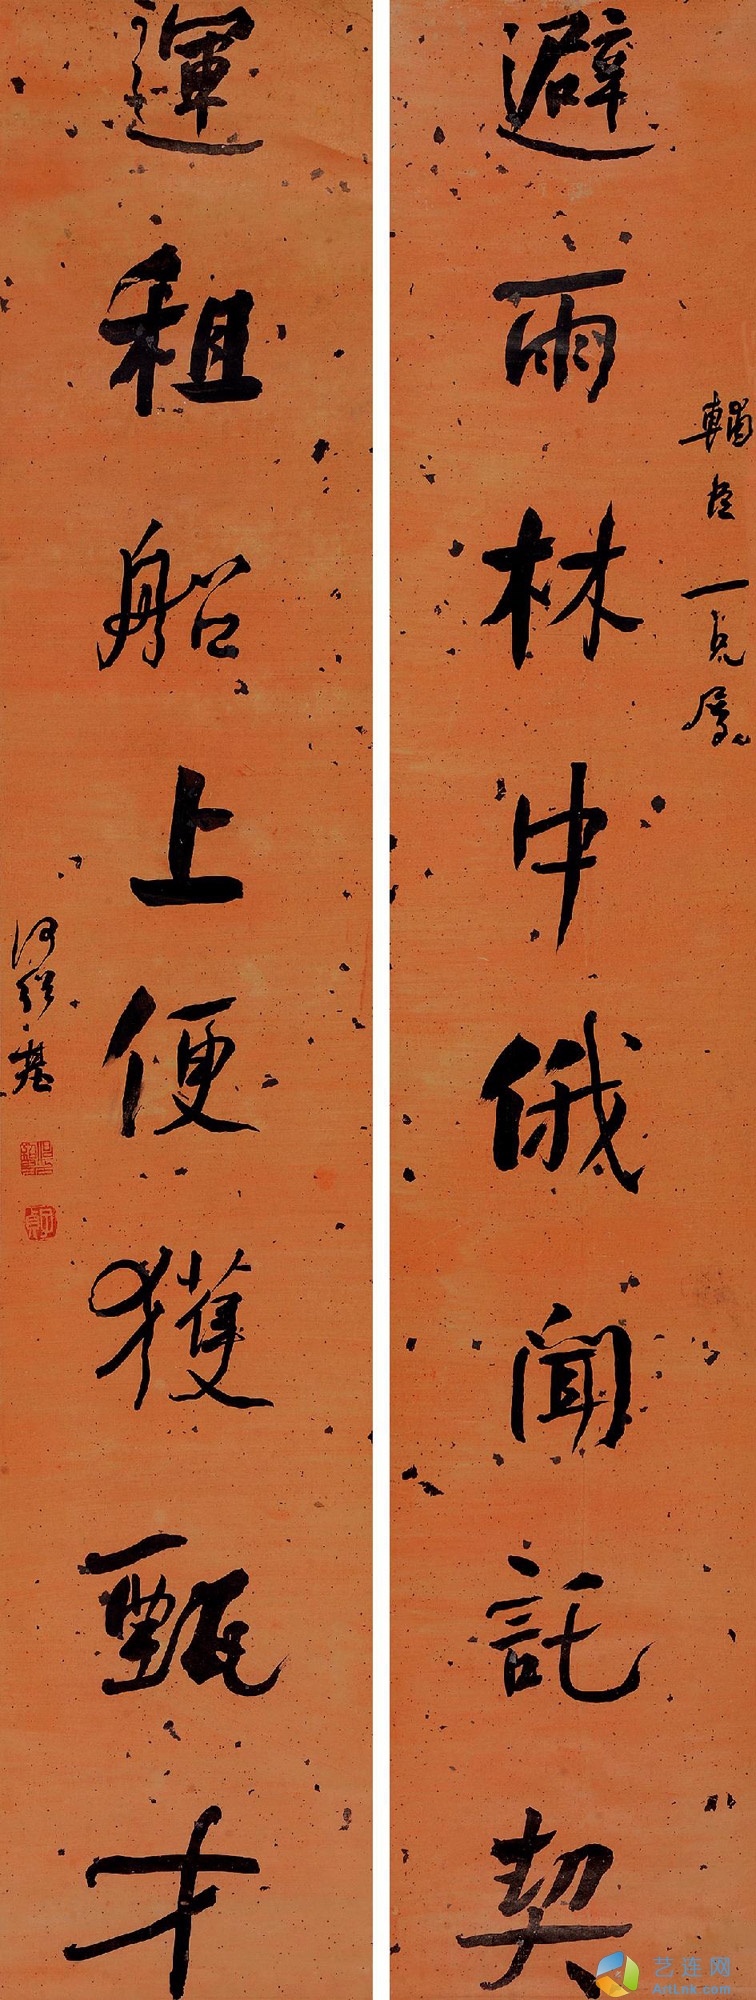 避雨林中俄聞託契
運租船上便獲甄才
一兄屬
何紹基
艺连网
ArtLnk.com